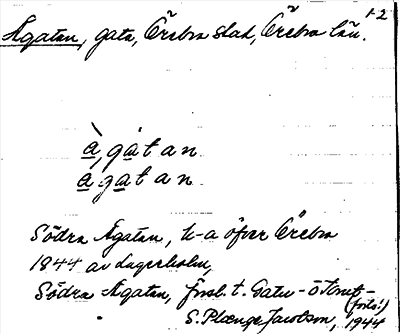 1-2
Ågatan, gata, Örebro stad, Örebro län.
à, gátan
ágatan
Södra Ågatan, k-a öfver Örebro
1844 av Lagerholm,
Södra Ågatan, försl. t. Gatu- o. tomt-
(forts!)
S. Plænge Jacobson, 1944